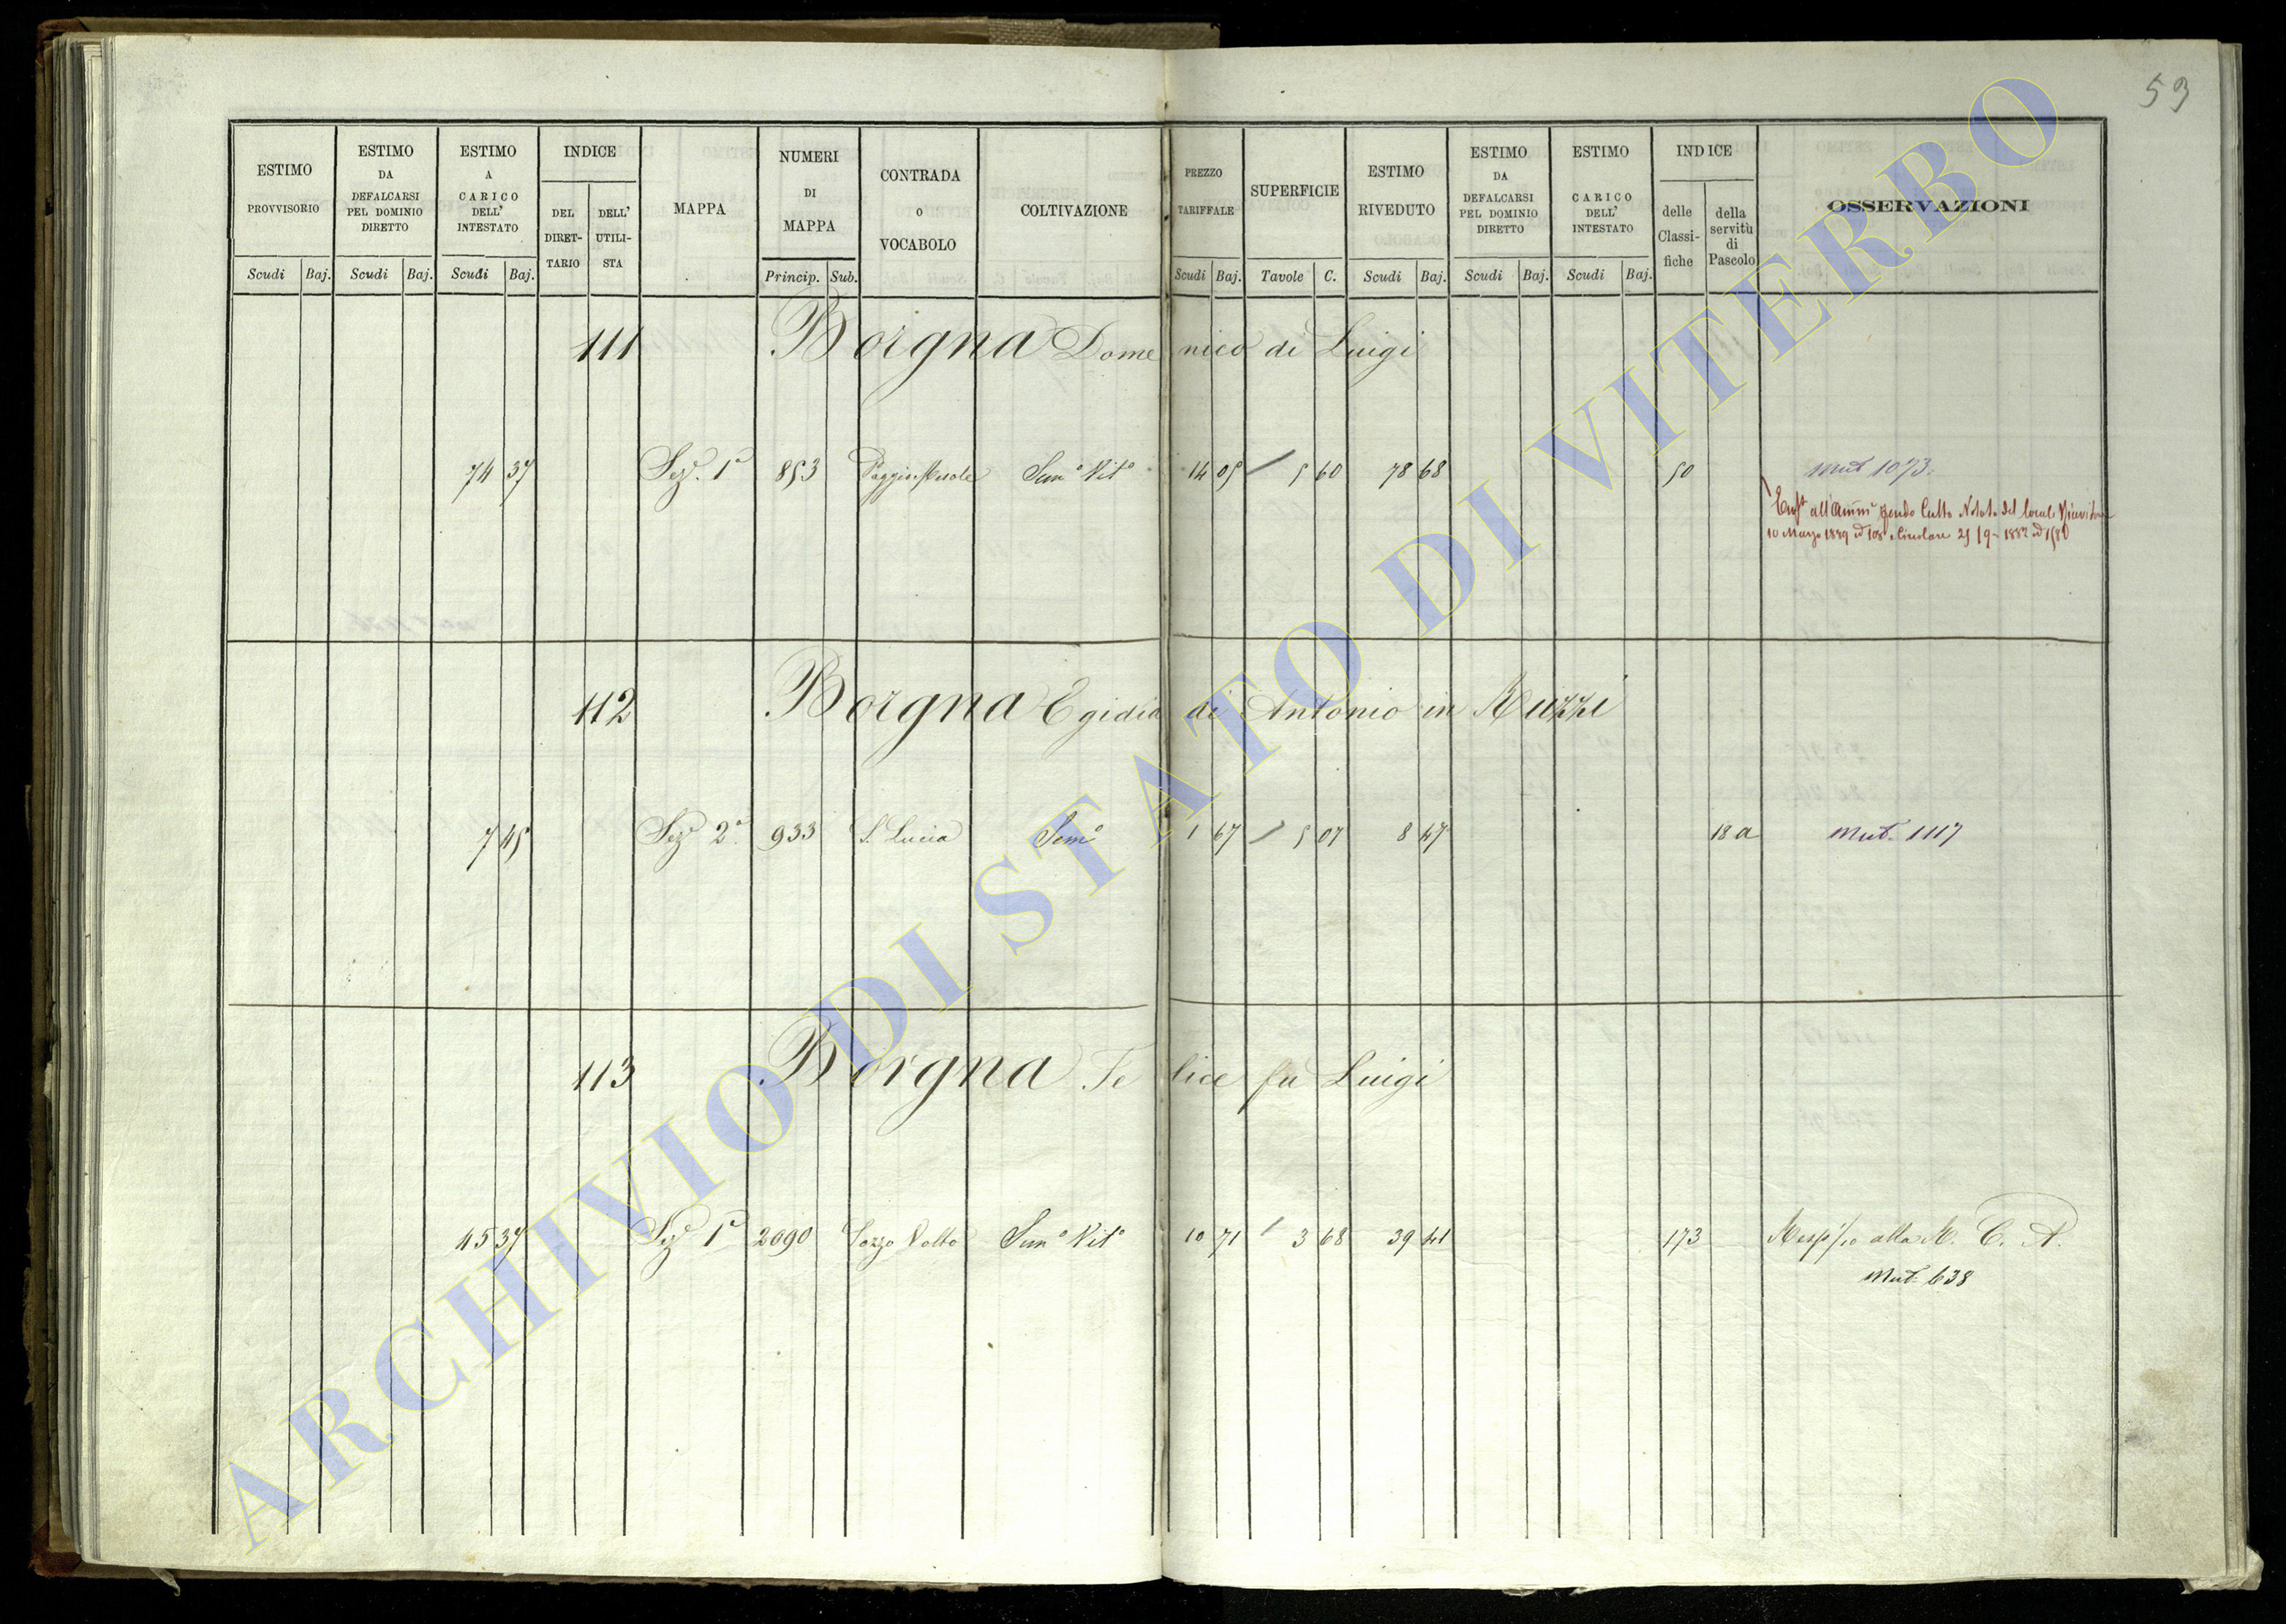 53
ESTIMO PROVVISORIO
Scudi Baj.
ESTIMO DA DEFALCARSI PEL DOMINIO DIRETTO
Scudi Baj.
ESTIMO A CARICO DELL' INTESTATO
Scudi Baj.
INDICE
DEL DIRET-TARIO
DELL' UTILI-STA
MAPPA
NUMERI DI MAPPA
Princip. Sub.
CONTRADA O VOCABOLO
COLTIVAZIONE
PREZZO TARIFFALE
Scudi Baj.
SUPERFICIE
Tavole C.
ESTIMO RIVEDUTO
Scudi Baj.
ESTIMO DA DEFALCARSI PEL DOMINIO DIRETTO
Scudi Baj.
ESTIMO CARICO DELL' INTESTATO
Scudi Baj.
INDICE
delle Classi-fiche
della servitù di Pascolo
OSSERVAZIONI
111 Borgna Domenico di Luigi
74 37 Sez.e 1a 853 Sem.o Vit.o 14 05 5 60 78 68 50 Mut 1073.
all'Amm.
10 Marzo 1889 Circolare
112 Borgna Egidia di Antonio in Ruzzi
7 45 Sez.e 2a 933 S. Lucia Sem.o 1 67 5 07 8 47 18 a Mut. 1117
113 Borgna Felice fu Luigi
45 37 Sez.e 1a 2090 Pozzo Volto Sem.o Vit.o 10 71 3 68 39 41 173 alla R. C. A.
Mut. 638
ARCHIVIO DI STATO DI VITERBO